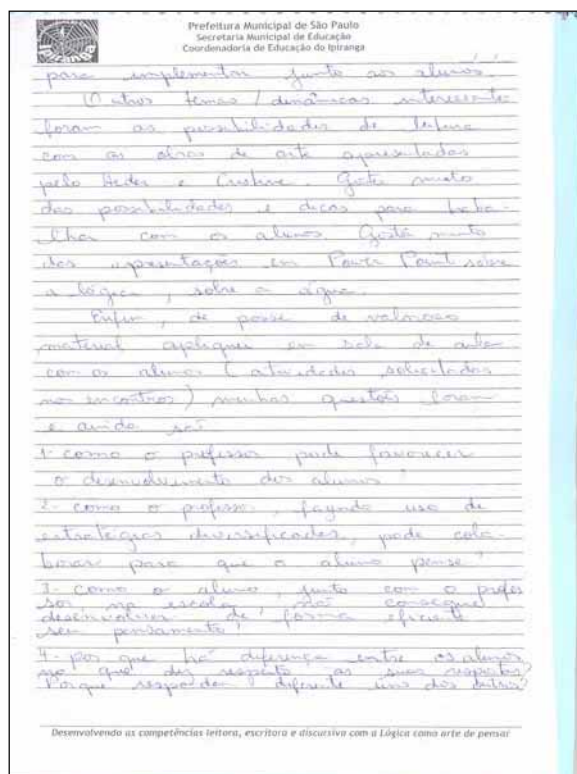 Prefeitura Municipal de São Paulo
Secretaria Municipal de Educação
Coordenadoria de Educação do Ipiranga
para implementar junto aos alunos.
Outros temas / dinâmicas interessante
foram as possibilidades de leitura
com as obras de arte apresentadas
pelo Heder e Cristine. Gostei muito
das possibilidades e dicas para traba-
lhar com os alunos. Gostei muito
das apresentações em Power Point sobre
a lógica, sobre a água.
Enfim, de posse de valoroso
material apliquei em sala de aula
com os alunos (atividades solicitadas
nos encontros) minhas questões foram
e ainda são
1- como o professor pode favorecer
o desenvolvimento dos alunos?
2- como o professor, fazendo uso de
estratégias diversificadas, pode cola-
borar para que o aluno pense?
3- como o aluno, junto com o profes
sor, na escola, não consegue
desenvolver de forma eficiente
seu pensamento?
4- por que há diferença entre os alunos
no que diz respeito as suas respostas?
Porque respondem diferente uns dos outros?
Desenvolvendo as competências leitora, escritora e discursiva com a Lógica como arte de pensar